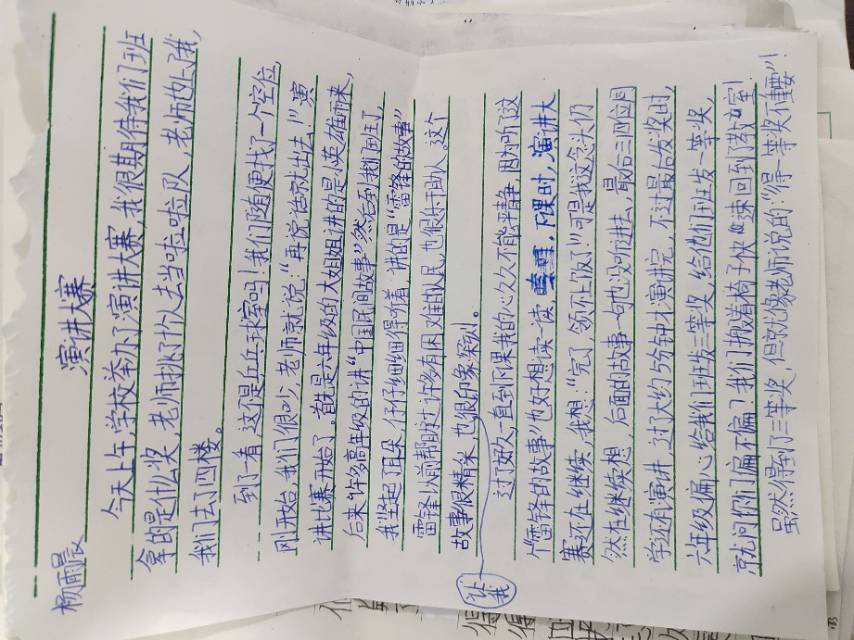 演讲大赛
杨雨晨
今天上午,学校举办了演讲大赛,我很期待我们班
拿的是什么奖,老师挑了几个人去当啦啦队,老师选上了我,
我们去了四楼。
到了一看,这不是乒乓球室吗!我们随便找了一个空位,
刚开始,我们很吵,老师就说:“再说话就出去!”演
讲比赛开始了,首先是六年级的大姐姐,讲的是小英雄雨来,
后来许多高年级的讲“中国民间故事”然后到我们班了
我竖起了耳朵,仔仔细细得听着,讲的是“雷锋的故事”
雷锋以前帮助过许多有困难的人民,也很乐于助人。这个
故事很精采,也让我印象深刻。
过了好久一直到下课我的心久久不能平静,因为听了这
个“雷锋的故事”也好想读一读,下课时,演讲大
赛还在继续,我想:“完了,领不上饭了”可是我这念头仍
然在继续想,后面的故事一句也没听进去,最后三四位同
学还有演讲,过了大约5分钟才演讲完,不过最后发奖时,
六年级偏心给我们班发三等奖,给他们班发一等奖,
就问你们偏不偏?我们搬着椅子快速回到了教室!
虽然得到了三等奖,但就像老师说的:“得一等奖不重要”!